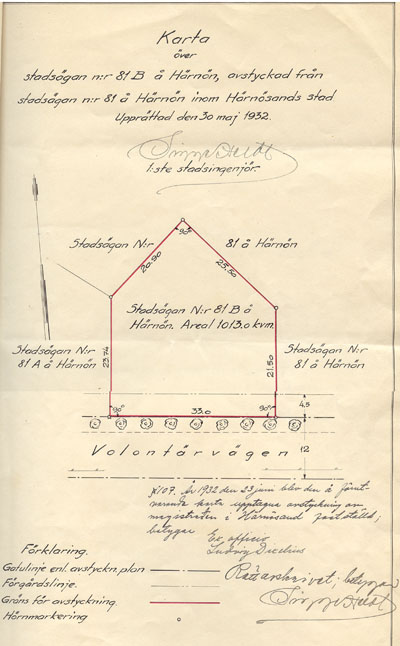 Karta
över
stadsägan n:r 81 B å Härnön, avstyckad från
stadsägan n:r 81 å Härnön inom Härnösands stad
Upprättad den 30 maj 1932.
1:ste stadsingenjör.
Stadsägan N:r 81 å Härnön
90°
20.90
25.50
Stadsägan N:r 81 B å
Härnön. Areal 1013.0 kvm.
Stadsägan N:r
81 A å Härnön
23.74
21.50
Stadsägan N:r
81 å Härnön
90°
33.0
90°
4.5
Volontärvägen
12
§ 107. År 1932 den 23 juni blev den å förut-
varande karta upptagna avstyckning av
magistraten i Härnösand fastställd;
betygar
Ex officio
Ludvig
Förklaring.
Gatulinje enl. avstyckn. plan
Förgårdslinje.
Gräns för avstyckning.
Hörnmarkering
betygar